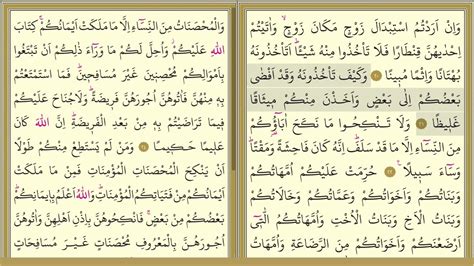 وَاِنْ اَرَدْتُمُ اسْتِبْدَالَ زَوْجٍ مَكَانَ زَوْجٍۙ وَاٰتَيْتُمْ
اِحْدٰيهُنَّ قِنْطَارًا فَلَا تَأْخُذُوا مِنْهُ شَيْـًٔاۜ اَتَأْخُذُونَهُ
بُهْتَانًا وَاِثْمًا مُبِينًا ٢٠ وَكَيْفَ تَأْخُذُونَهُ وَقَدْ اَفْضٰى
بَعْضُكُمْ اِلٰى بَعْضٍ وَاَخَذْنَ مِنْكُمْ مِيثَاقًا
غَلِيظًا ٢١ وَلَا تَنْكِحُوا مَا نَكَحَ اٰبَٓاؤُكُمْ
مِنَ النِّسَٓاءِ اِلَّا مَا قَدْ سَلَفَۜ اِنَّهُ كَانَ فَاحِشَةً وَمَقْتًاۜ
وَسَٓاءَ سَبِيلًا ٢٢ حُرِّمَتْ عَلَيْكُمْ اُمَّهَاتُكُمْ
وَبَنَاتُكُمْ وَاَخَوَاتُكُمْ وَعَمَّاتُكُمْ وَخَالَاتُكُمْ
وَبَنَاتُ الْاَخِ وَبَنَاتُ الْاُخْتِ وَاُمَّهَاتُكُمُ الّٰتِٓي
اَرْضَعْنَكُمْ وَاَخَوَاتُكُمْ مِنَ الرَّضَاعَةِ وَاُمَّهَاتُ
وَالْمُحْصَنَاتُ مِنَ النِّسَٓاءِ اِلَّا مَا مَلَكَتْ اَيْمَانُكُمْۚ كِتَابَ
اللّٰهِ عَلَيْكُمْۚ وَاُحِلَّ لَكُمْ مَا وَرَٓاءَ ذٰلِكُمْ اَنْ تَبْتَغُوا
بِاَمْوَالِكُمْ مُحْصِنِينَ غَيْرَ مُسَافِحِينَۜ فَمَا اسْتَمْتَعْتُمْ
بِهِ مِنْهُنَّ فَاٰتُوهُنَّ اُجُورَهُنَّ فَرِيضَةًۜ وَلَا جُنَاحَ عَلَيْكُمْ
فِيمَا تَرَاضَيْتُمْ بِهِ مِنْ بَعْدِ الْفَرِيضَةِۜ اِنَّ اللّٰهَ كَانَ
عَلِيمًا حَكِيمًا ٢٤ وَمَنْ لَمْ يَسْتَطِعْ مِنْكُمْ طَوْلًا
اَنْ يَنْكِحَ الْمُحْصَنَاتِ الْمُؤْمِنَاتِ فَمِنْ مَا مَلَكَتْ
اَيْمَانُكُمْ مِنْ فَتَيَاتِكُمُ الْمُؤْمِنَاتِۜ وَاللّٰهُ اَعْلَمُ بِاِيمَانِكُمْۜ
بَعْضُكُمْ مِنْ بَعْضٍۚ فَانْكِحُوهُنَّ بِاِذْنِ اَهْلِهِنَّ وَاٰتُوهُنَّ
اُجُورَهُنَّ بِالْمَعْرُوفِ مُحْصَنَاتٍ غَيْرَ مُسَافِحَاتٍ